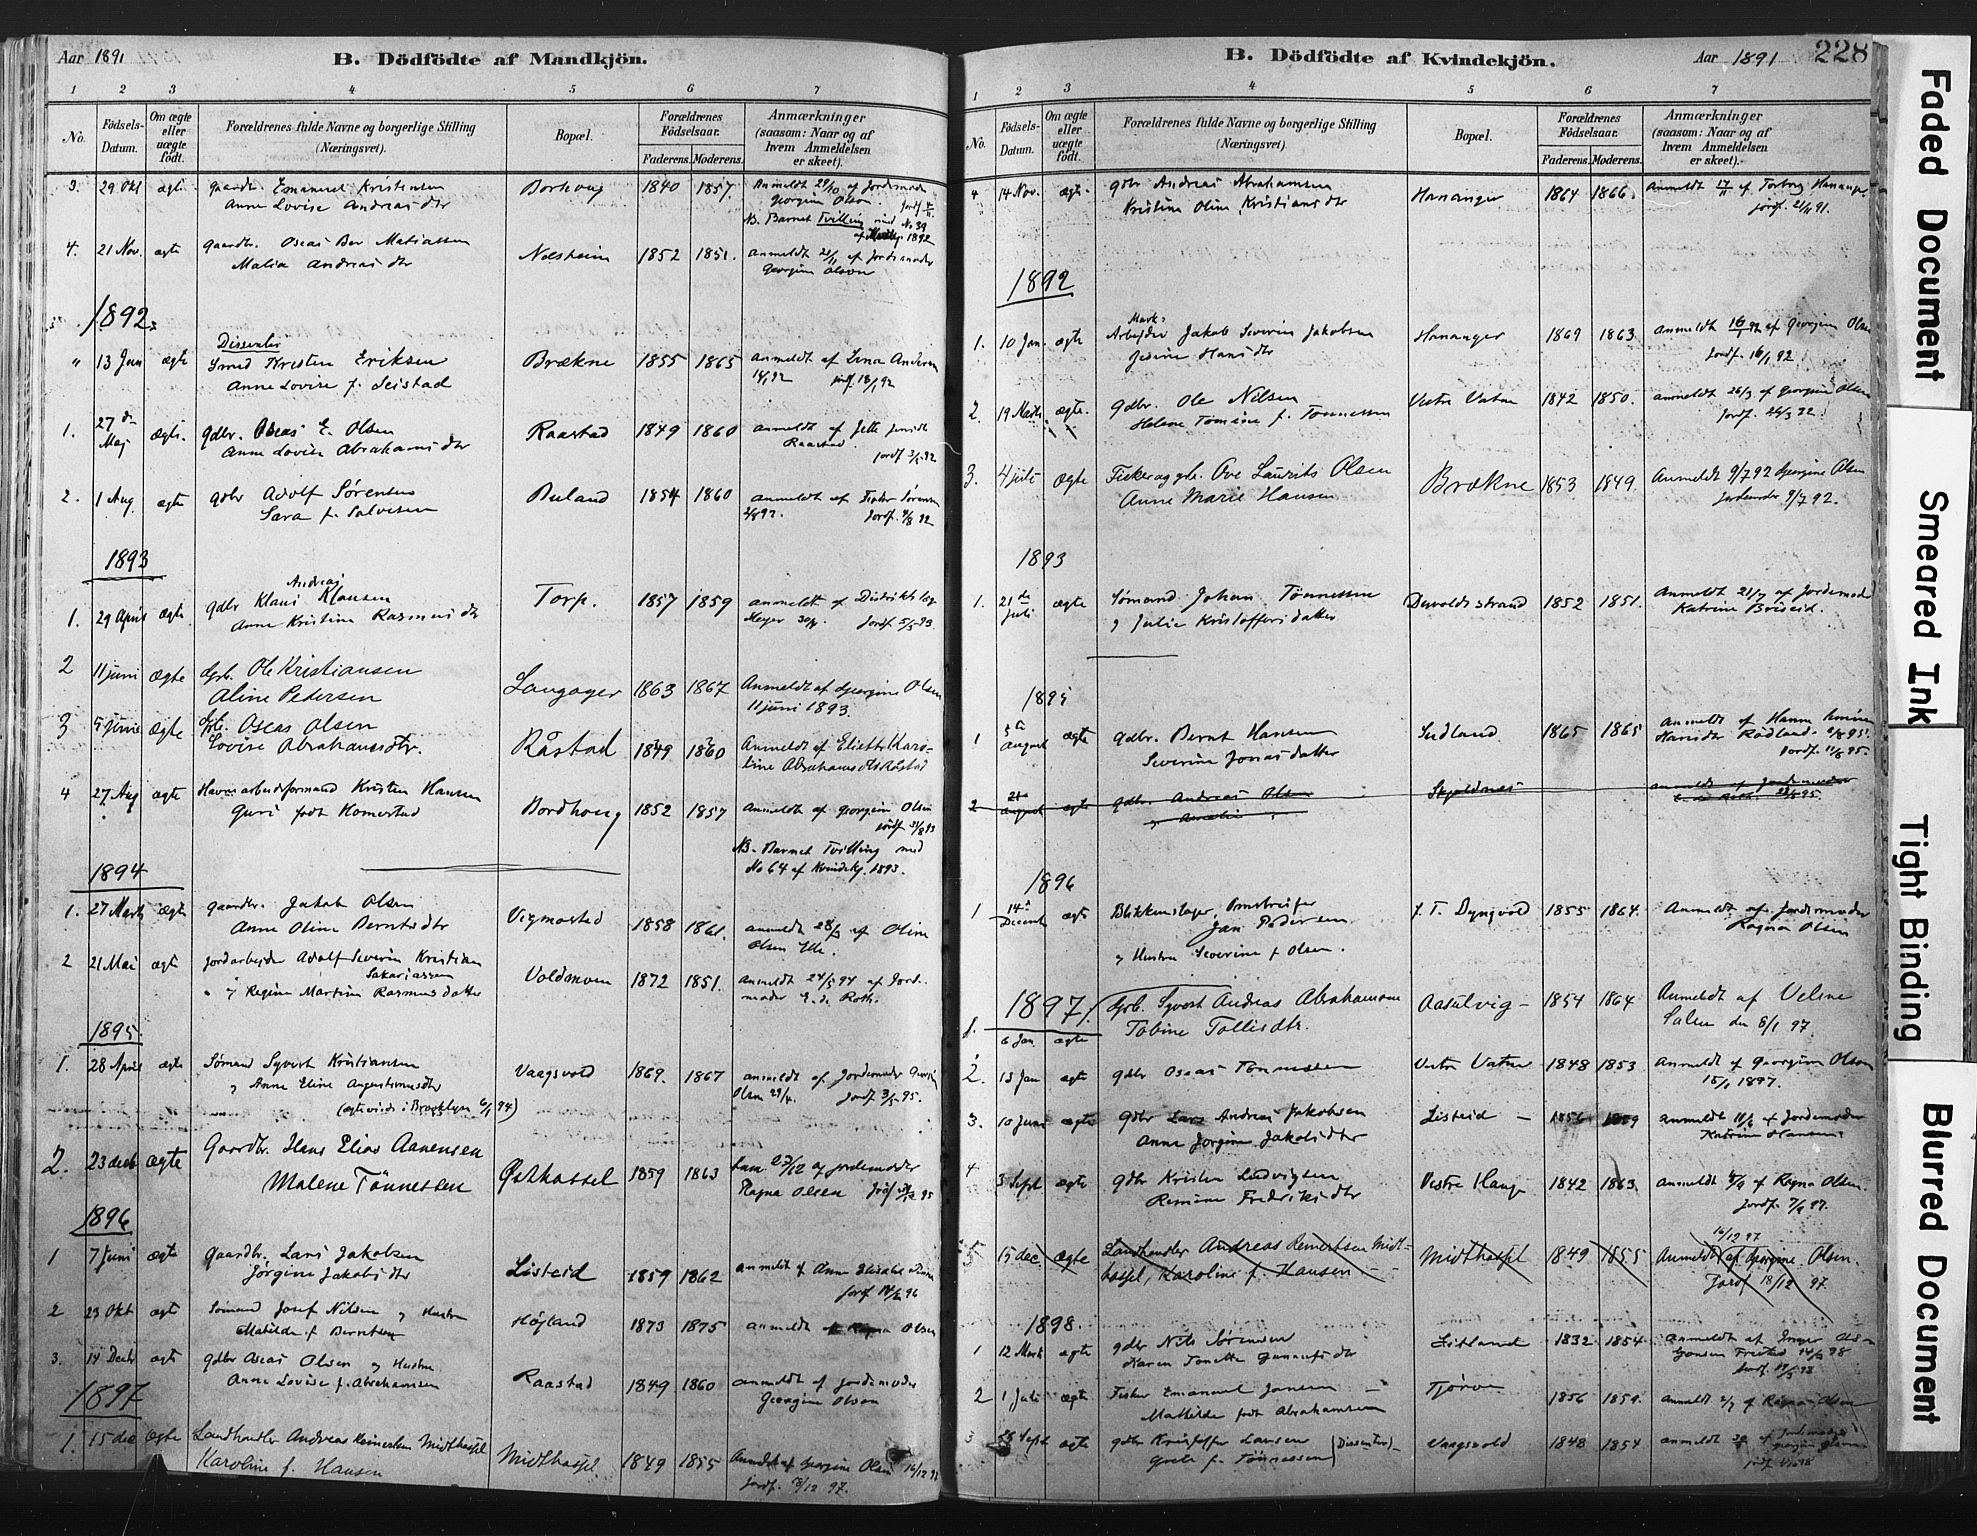 Aar 1891
B. Dödfödte af Mandkjön.
1 2 3 4 5 6 7
No. Födsels-Datum. Om ægte eller uægte födt. Forældrenes fulde Navne og borgerlige Stilling (Næringsvei). Bopæl. Forældrenes Födselsaar. Faderens. Moderens. Anmærkninger (saasom: Naar og af hvem Anmeldelsen er skeet).
3. 29 Okt ægte gaardbr. Emanuel Kristensen Borhoug 1840 1857. Anmeldt 29/10 af Jordemoder
Anne Lovise Andreasdtr Georgine Olsen.
NB. Barnet Tvilling med No 39
1892
4. 21 Nov. ægte gaardbr. Oscar Ber Matiassen 1852 1851. anmeldt af Jordemoder
Malia Andreasdtr Georgine Olsen
1892
" 13 Jan ægte Dissenter
Smed Kristen Eriksen Brækne 1855 1865 anmeldt af Lena Andersen
Anne Lovise f. Seistad 14/1 92 jordf. 18/1 92
1. 27de Maj ægte. gdbr. Oscar E. Olsen Raastad 1849 1860 anmeldt af Jette
Anne Lovise Abrahamsdtr Raastad
jordf 3/5 92
2. 1 Aug. ægte gdbr Adolf Sørensen Buland 1854 1860 anmeldt af Sørensen
Sara f. Salvesen 2/8 92. Jordf. 4/8 92
1893
Andreas
1. 29 April ægte gdbr Klaus Klausen Torp. 1857 1859 anmeldt af Distriktslæg
Anne Kristine Rasmusdtr Meyer 30/4. Jordf. 5/5 93.
2 11 juni ægte Gbr. Ole Kristiansen Langager 1863 1867 Anmeldt af Georgine Olsen
Aline Petersen 11 juni 1893.
3 5 juni ægte Gbr. Oscar Olsen Råstad 1849 1860 Anmeldt af Karo-
Lovise Abrahamsdtr. line Abrahamsdtr Råstad
4 27 Aug ægte Havnearbeidsformand Kristen Hansen Bordhoug 1852 1857 anmeldt af Georgine Olsen
Guri født Homestad jordf 31/8 93
NB. Barnet Tvilling med
No 64 af Kvindekj. 1893.
1894
1. 27 Marts ægte gaardbr. Jakob Olsen Vigmostad 1858 1861. anmeldt 28/3 af Oline
Anne Oline Berntsdtr Olsen
2 21 Mai ægte Jordarbeider Adolf Severin Kristian Voldmoen 1872 1851. anmeldt 24/5 94 af Jord-
Sakariassen
Regine Martine Rasmusdatter moder E. de Roth.
1895
1. 28 April ægte Sømand Syvert Kristiansen Vaagsvold 1869. 1867 anmeldt af Jordemoder
og Anne Eline Augustinusdtr Olsen 29/4. Jordf 3/5 95.
(ægteviede i Brooklyn 6/1 94)
2. 23 decb ægte Gaardbr. Hans Elias Aanensen Østhassel 1859 1863 27/12 af jordemoder
Malene Tønnessen Ragna Olsen
1896
1 7 Juni ægte Gaardbr. Lars Jakobsen Listeid 1859 1862 anmeldt af Anne Elisabet
Jørgine Jakobsdtr
2 23 Okt ægte Sømand Josef Nilsen og Hustru Højland 1873 1875 anmeldt Ragna Olsen
Matilde f. Berntsen
3. 14 Decbr ægte gdbr Oscar Olsen og Hustru Raastad 1849 1860 anmeldt af Jordemoder
Anne Lovise f. Abrahamsen Georgine Olsen
1897
1. 15 dec ægte Landhandler Andreas Reinertsen Midthassel Midthassel 1849 1855 Anmeldt af Georgine Olsen 16/12 97
Karoline f. Hansen Jordf. 18/12 97.
B. Dödfödte af Kvindekjön.
Aar 1891
228
1 2 3 4 5 6 7
No. Födsels-Datum. Om ægte eller uægte födt. Forældrenes fulde Navne og borgerlige Stilling (Næringsvei). Bopæl. Forældrenes Födselsaar. Faderens. Moderens. Anmærkninger (saasom: Naar og af hvem Anmeldelsen er skeet).
4 14 Nov. ægte gdbr Andreas Abrahamsen Hananger 1864 1866. Anmeldt 17/11 af Torborg Hananger
Kristine Oline Kristiansdtr jordf. 21/11 91.
1892
1. 10 Jan. ægte Arbejder Jakob Severin Jakobsen Hananger 1869 1863. anmeldt 16/1 92 af Georgine Olsen
Hansdtr Jordf. 16/1 92.
2. 19 Marts. ægte. gdbr. Ole Nilsen Vestre Vatne 1842 1850. anmeldt 26/3 af Georgine Olsen
Helene Tomine f. Tønnessen Jordf. 26/3 92.
3. 4 juli ægte Fisker og gbr. Ove Laurits Olsen Brækne 1853 1849. Anmeldt 9/7 92 Georgine Olsen
Anne Marie Hansen Jordemoder 9/7 92.
1893
1. 21de Juli ægte Sømand Johan Tønnessen 1852 1851. Anmeldt 21/7 af Jordemoder
og Julie Kristoffersdatter Katrine Briseid.
1895
1 5te August ægte gdbr. Bernt Hansen Sudland 1865 1865 anmeldt af Hanne
Severine Jonasdatter Hansdtr Rødland.
Jordf. 11/8 95.
2 21 August ægte gdbr. Andreas Olsen Skjoldnes anmeldt af Jordemoder
1896
1 14de Decemb ægte Blikkenslager, Jan Pedersen f. T. Dyngvold 1855 1864. Anmeldt af Jordemoder
Ragna Olsen
og Hustru Severine f Olsen.
1897.
1. 6 Jan. ægte Gbr. Syvert Andreas Abrahamsen Aasulvig 1854 1864 Anmeldt af Velene
Tobine Tollisdtr. Salen den 8/1 97.
2. 13 Jan ægte gdbr Oscar Tønnessen Vestre Vatne 1848 1853 Anmeldt af Georgine Olsen
15/1 1897.
3. 10 Juni ægte gdbr Lars Andreas Jakobsen Listeid 1856 1859 anmeldt 11/6 af Jordemoder
Anne Jørgine Jakobsdtr Katrine Hansen
4 3 Sept ægte gdbr Kristen Ludvigsen Vestre Hauge 1842 1863. anmeldt 4/9 af Ragna Olsen.
Fredriksdtr Jordf. 7/9 97.
16/12 97
5 15 dec. ægte Landhandler Andreas Reinertsen Midt- Midthassel 1849 1855 Anmeldt af Georgine Olsen.
hassel, Karoline f. Hansen Jordf 18/12 97.
1898.
1 12 Marts ægte gdbr Nils Sørensen 1832 1854. anmeldt af Inger
Karen Tonette Gunnufsdtr
2 1 Juli ægte Fisker Emanuel Jansen Tjørve 1856 1859. anmeldt 2/7 af Ragna Olsen
Mathilde født Abrahamsen
3 28 Sept ægte gdbr Kristoffer Larsen (Dissenter) Vaagsvold 1848 1854 anmeldt af Jordemoder
Grete f. Tønnessen
Faded Document
Smeared Ink
Tight Binding
Blurred Document